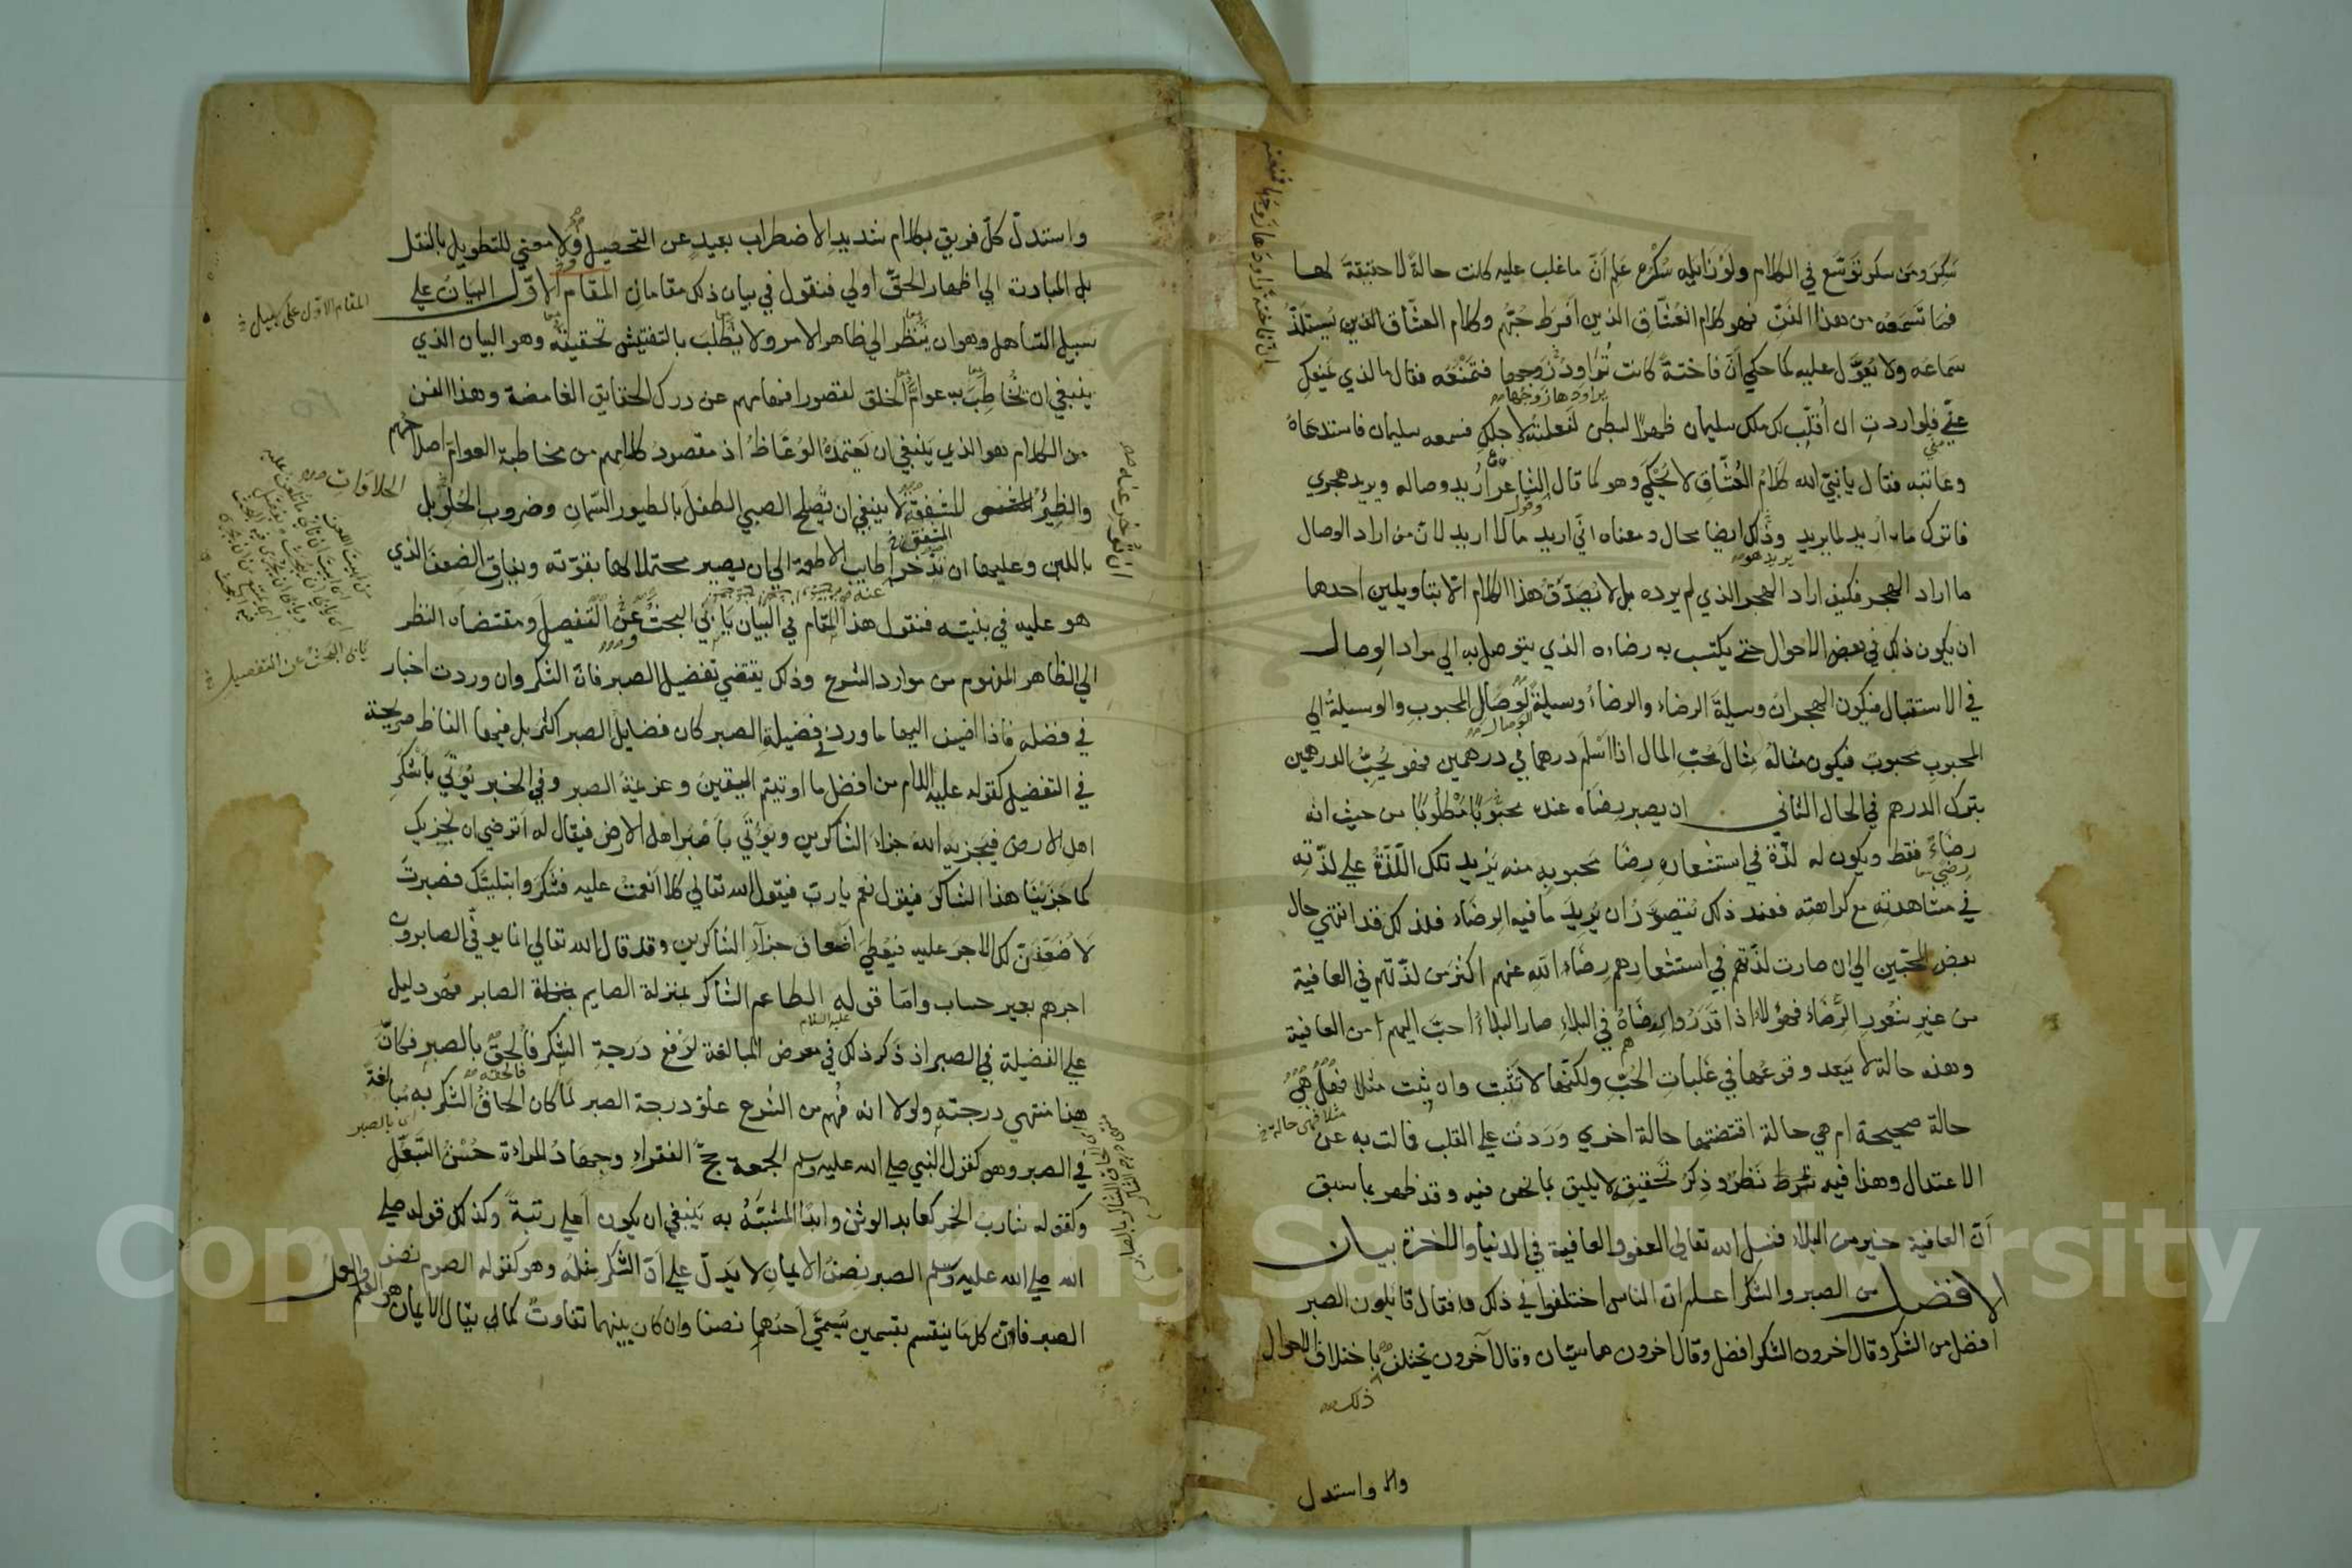 سَكِرَ ومَن سكر تَوَسَّع في الكلام ولوْ زايله سُكْرُه عَلِم اَنّ ما غلب عليه كانت حالةً لا حقيقةَ لهـا
فمَا تَسمَعُه من هذا الفَنّ فهو كلام العُشّاق الذين اَفرَط حبّهم وكلام العشّاق الذين يُستَلَذُّ
سَماعه ولا يُعوَّل عليه كما حكي اَنّ فاختةً كانت تُراوِدُ زَوجها فتمنَعُه فقال ما الذي يَمنعكِ
يراودها زوجها
عنّي فلو اردتِ ان اُقلّبَ لكِ ملك سليمان ظهرًا لبطن لفعلتُه لاجلكِ فسمعه سليمان فاستدعاهُ
وعاتبه فقال يا نبيّ الله كلامُ العُشّاقِ لا يُحْكَي وهو كما قال الشاعر اُرِيد وصاله ويريد هجري
فاترك ما اريد لما يريد وذلك ايضا محال ومعناه انّي اريد ما لا اريد لانّ من اراد الوصال
يريد هو
ما اراد الهجر فكيف اراد الهجر الذي لم يرده بل لا يَصدُقُ هذا الكلام الّا بتاويلين احدهما
ان يكون ذلك في بعض الاحوال حتي يكتسب به رضاءه الذي يتوصل به الي مراد الوصال
في الاستقبال فيكون الهجران وسيلةَ الرضاء والرضاءُ وسيلةً لِوصَالِ المحبوبِ والوسيلةُ الي
الوصال
المحبوب محبوبة فيكون مثالُهُ مِثالَ مُحِبّ المال اذا اَسْلَم درهما في درهمين فهو يُحِبُّ الدرهمين
بترك الدرهم في الحال الثاني ان يصير رضاه عنده محبُوبًا مَطْلُوبًا من حيث انه
رِضَاءٌ فقط ويكون له لذّة في استشعاره رِضَا محبوبِهِ منه يَزيد تلك اللّذّةُ علي لذّتِهِ
في مشاهدتِه مع كراهته فعند ذلك يُتصوَّرُ ان يُرِيدَ ما فيه الرضَاء فلذلك قد انتهي حال
بعض المحبّين الي ان صارت لذّتهم في استشعارهم رِضَاءَ الله عنهم اكثرَ من لذّتهم في العافية
من غيرِ شُعُورِ الرِّضَاء فهؤلاء اذا قَدَّرُوا رِضَاهُ في البلاءِ صار البلاءُ احبَّ اليهم من العافية
وهذه حالة لا يَبعد وقوعُها في غلَبات الحُبِّ ولكنّها لا تَثْبت وان ثبت مثلا فهَلْ هي
مثلا فهي حالة
حالة صحيحة ام هي حالة اقتضتها حالة اخري وَرَدت علي القلب فمالت به عن
الاعتدال وهذا فيه نَظَرٌ وذِكرُ تَحقيقِهِ لا يليق بما نحن فيه وقد ظهر بما سبق
اَنّ العافية خير من البلاء فنسل الله تعالي العفو والعافية في الدنيا والاخرة بيـــان
الافضــل من الصبر والشكر اعـلم انّ الناس اختلفوا في ذلك فقال قايلون الصبر
افضل من الشكر وقال اخرون الشكر افضل وقال اخرون هما سيّان وقال آخرون يختلف باختلاف الاحوال
ذلك
واستدل
واستدلّ كلّ فريق بكلام شديدِ الاضطراب بعيدٍ عن التحصيل ولا معني للتطويل بالنقل
بل المبادرة الي اظهار الحقّ اولي فنقول في بيان ذلك مقامان المقـام الاوّل البيانُ علي
المقام الاول على سبيل
سبيل التساهل وهو ان يُنظَر الي ظاهر الامر ولا يُطلَبَ بالتفتيش تحقيقه وهو البيان الذي
ينبغي ان يُخاطَبَ به عوامُّ الخلق لقصور افهامهم عن درك الحقايق الغامضة وهذا الفن
من الكلام هو الذي يَنبغي ان يَعتمدَهُ الوُعّاظُ اذ مقصودُ كلامهم من مخاطبة العوامّ اصلاحهم
الحلاوات
والظِئرُ المشفقة لا ينبغي ان تُصلح الصبي الطفلَ بالطيور السِّمانِ وضروب الحُلو بل
باللبن وعليها ان تُؤخّر اطايب الاطعمة الي ان يصير محتملا لها بقوّته ويفارق الضعفَ الذي
هو عليه في بنيته فنقول هذا المقام في البيان يَأبَي البحثَ عن التفصيل ومقتضاه النظر
يابى البحث عن التفصيل
الي الظاهر المفهوم من موارد الشرع وذلك يقتضي تفضيل الصبر فانّ الشكر وان وردت اخبار
في فضله فاذا اضيف اليها ما ورد في فضيلةِ الصبر كان فضايلُ الصبر اكثر بل فيها الفاظ صريحة
في التفضيل كقوله عليه السلام من افضل ما اوتيتم اليقينُ وعزيمةُ الصبر وفي الخبر يُؤتَي بأشكر
اهل الارض فيجزيه اللهُ جزاءَ الشاكرين ويُؤتَي بأَصْبَرِ اهل الارض فيقال له اَترضي ان نَجزيك
كما جَزَيْنَا هذا الشاكرَ فيقول نعم يا ربّ فيقول الله تعالي كلّا اَنعمتُ عليه فشكر وابتليتُك فصبرتَ
لاُضعّفنّ لك الاجر عليه فيُعطَي اَضعافَ جزآء الشاكرين وقد قال الله تعالي انما يوفّي الصابرون
اجرهم بغير حساب وامّا قوله الطاعم الشاكر بمنزلة الصايم الصابر فهو دليل
عليه السلام
علي الفضيلة في الصبر اذ ذَكر ذلك في معرض المبالغة لرَفعِ دَرجةِ الشكر فاُلحِقَ بالصبر فكانّ
فالحقه
هذا منتهي درجتهِ ولولا انه فُهِم من الشرع علوّ درجة الصبر لَمَا كان الحاقُ الشكر به مُبالغةً
بالصبر
في الصبر وهو كقول النبي صلي الله عليه وسلم الجمعة حجّ الفقراء وجهادُ المراءة حُسْنُ التَّبعُّل
وكقوله شارب الخمر كعابد الوثن وابدًا المشبَّهُ به يَنبغي ان يكون اَعلي رتبةً وكذلك قوله صلي
الله صلي الله عليه وسلم الصبر نِصفُ الايمان لا يدلّ علي اَنّ الشكر مِثلُه وهو كقوله الصوم نصف
الصبر فانّ كلّ ما ينقسم بقسمين يُسمَّي اَحدُهما نصفا وان كان بينهما تفاوتٌ كما يقال الايمان هو العلم والعمل